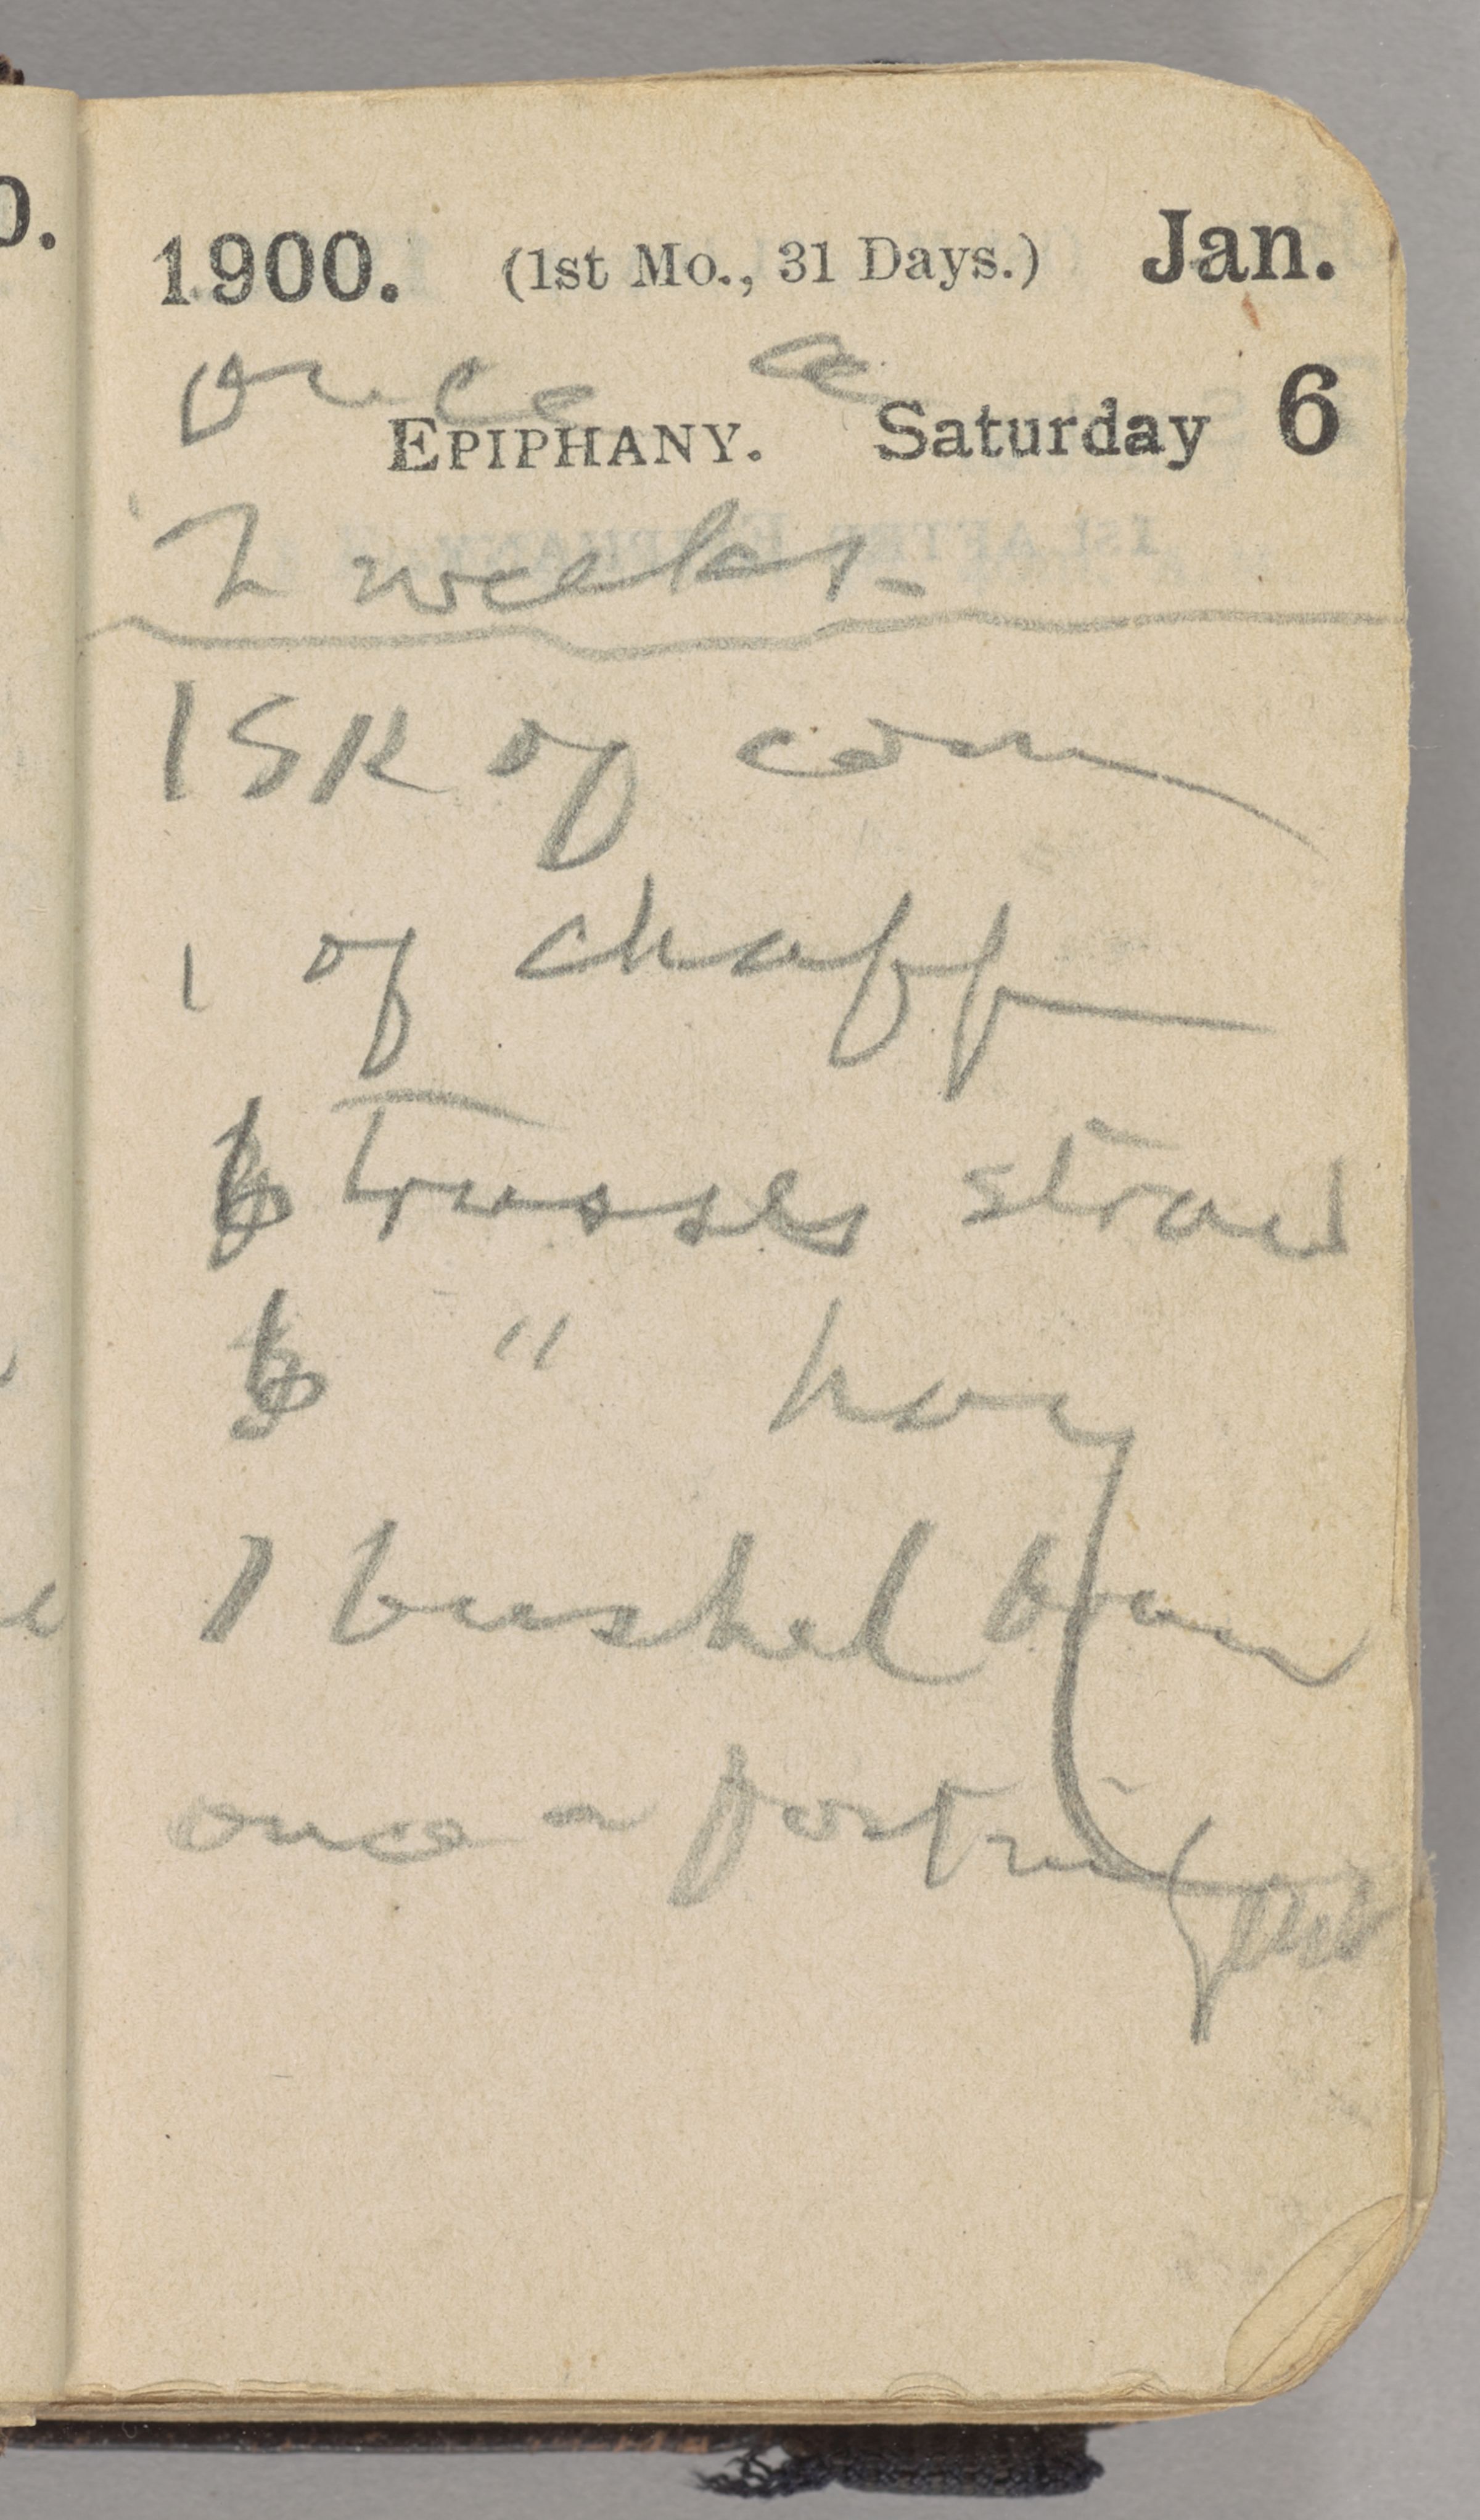 1900. (1st Mo., 31 Days.) Jan.
once a
EPIPHANY. Saturday 6
2 weeks
1 SK of corn
1 of chaff
6 Trusses straw
6 " hay
1 bushel bran
once a fortnight